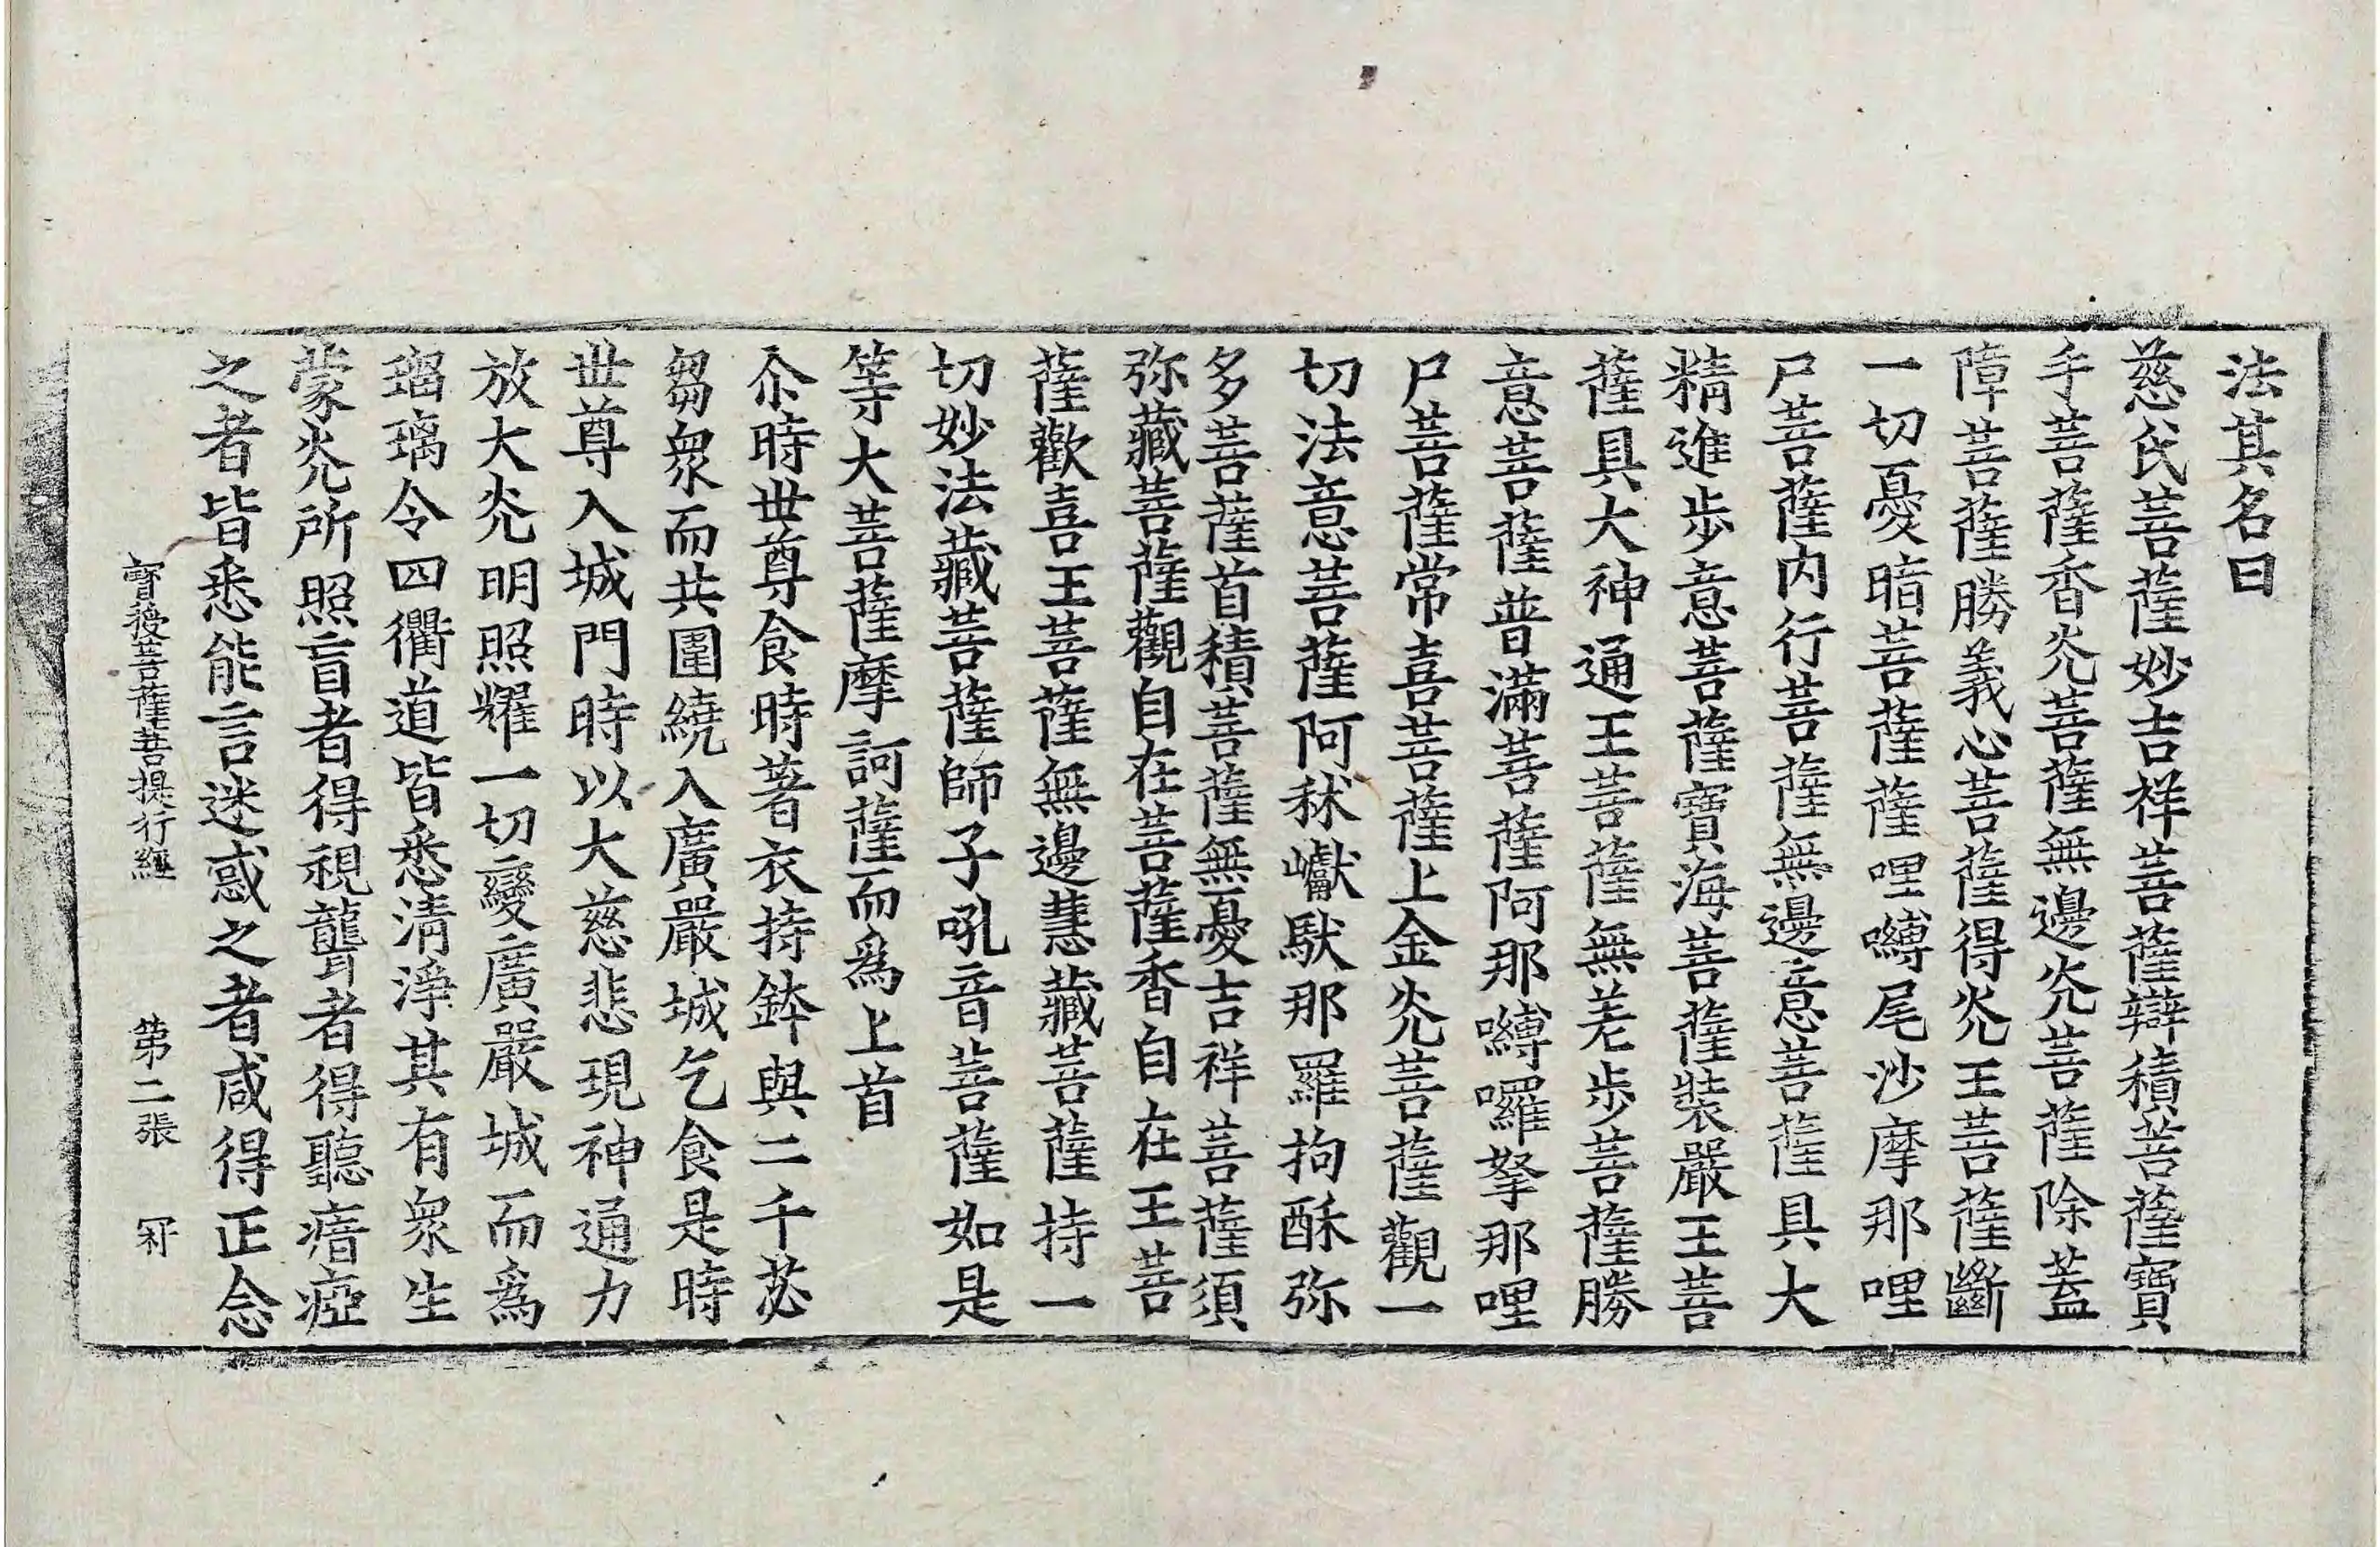 法其名曰
慈氏菩薩妙吉祥菩薩辯積菩薩寶
手菩薩香光菩薩無邊光菩薩除蓋
障菩薩勝義心菩薩得光王菩薩斷
一切憂暗菩薩薩哩嚩尾沙摩那哩
尸菩薩内行菩薩無邊意菩薩具大
精進步意菩薩寶海菩薩裝嚴王菩
薩具大神通王菩薩無羌步菩薩勝
意菩薩普滿菩薩阿那嚩囉拏那哩
尸菩薩常喜菩薩上金光菩薩觀一
切法意菩薩阿秫巘馱那羅拘酥弥
多菩薩首積菩薩無憂吉祥菩薩須
弥藏菩薩觀自在菩薩香自在王菩
薩歡喜王菩薩無邊慧藏菩薩持一
切妙法藏菩薩師子吼音菩薩如是
等大菩薩摩訶薩而爲上首
尒時世尊食時著衣持鉢與二千苾
芻衆而共圍繞入廣嚴城乞食是時
世尊入城門時以大慈悲現神通力
放大光明照耀一切變廣嚴城而爲
瑠璃令四衢道皆悉清淨其有衆生
蒙光所照盲者得視聾者得聽瘖瘂
之者皆悉能言迷惑之者咸得正念
寶授菩薩菩提行經 第二張